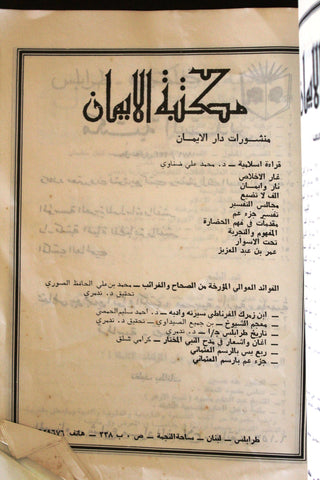 مكتبة الايمان
منشورات دار الايمان
قراءة اسلامية — د. محمد علي ضناوي
غار الاخلاص
نار وايمان
الف لا تضيع
مجالس التفسير
تفسير جزء عم
مقدمات في فهم الحضارة
المفهوم والتجربة
تحت الاسوار
عمر بن عبد العزيز
الفوائد العوالي المؤرخة من الصحاح والغرائب — محمد بن علي الحافظ الصوري
تحقيق د. تدمري
— ابن زمرك الغرناطي سيرته وادبه — د. احمد سليم الحمصي
— معجم الشيوخ — بن جميع الصيداوي — تحقيق د. تدمري
— تاريخ طرابلس ج/١ — د. تدمري
— اغان واشعار في مدح النبي المختار — كرامي شلق
— ربع يس بالرسم العثماني
— جزء عم بالرسم العثماني
طرابلس — لبنان — ساحة النجمة — ص ٠ ب ٢٣٨ — هاتف